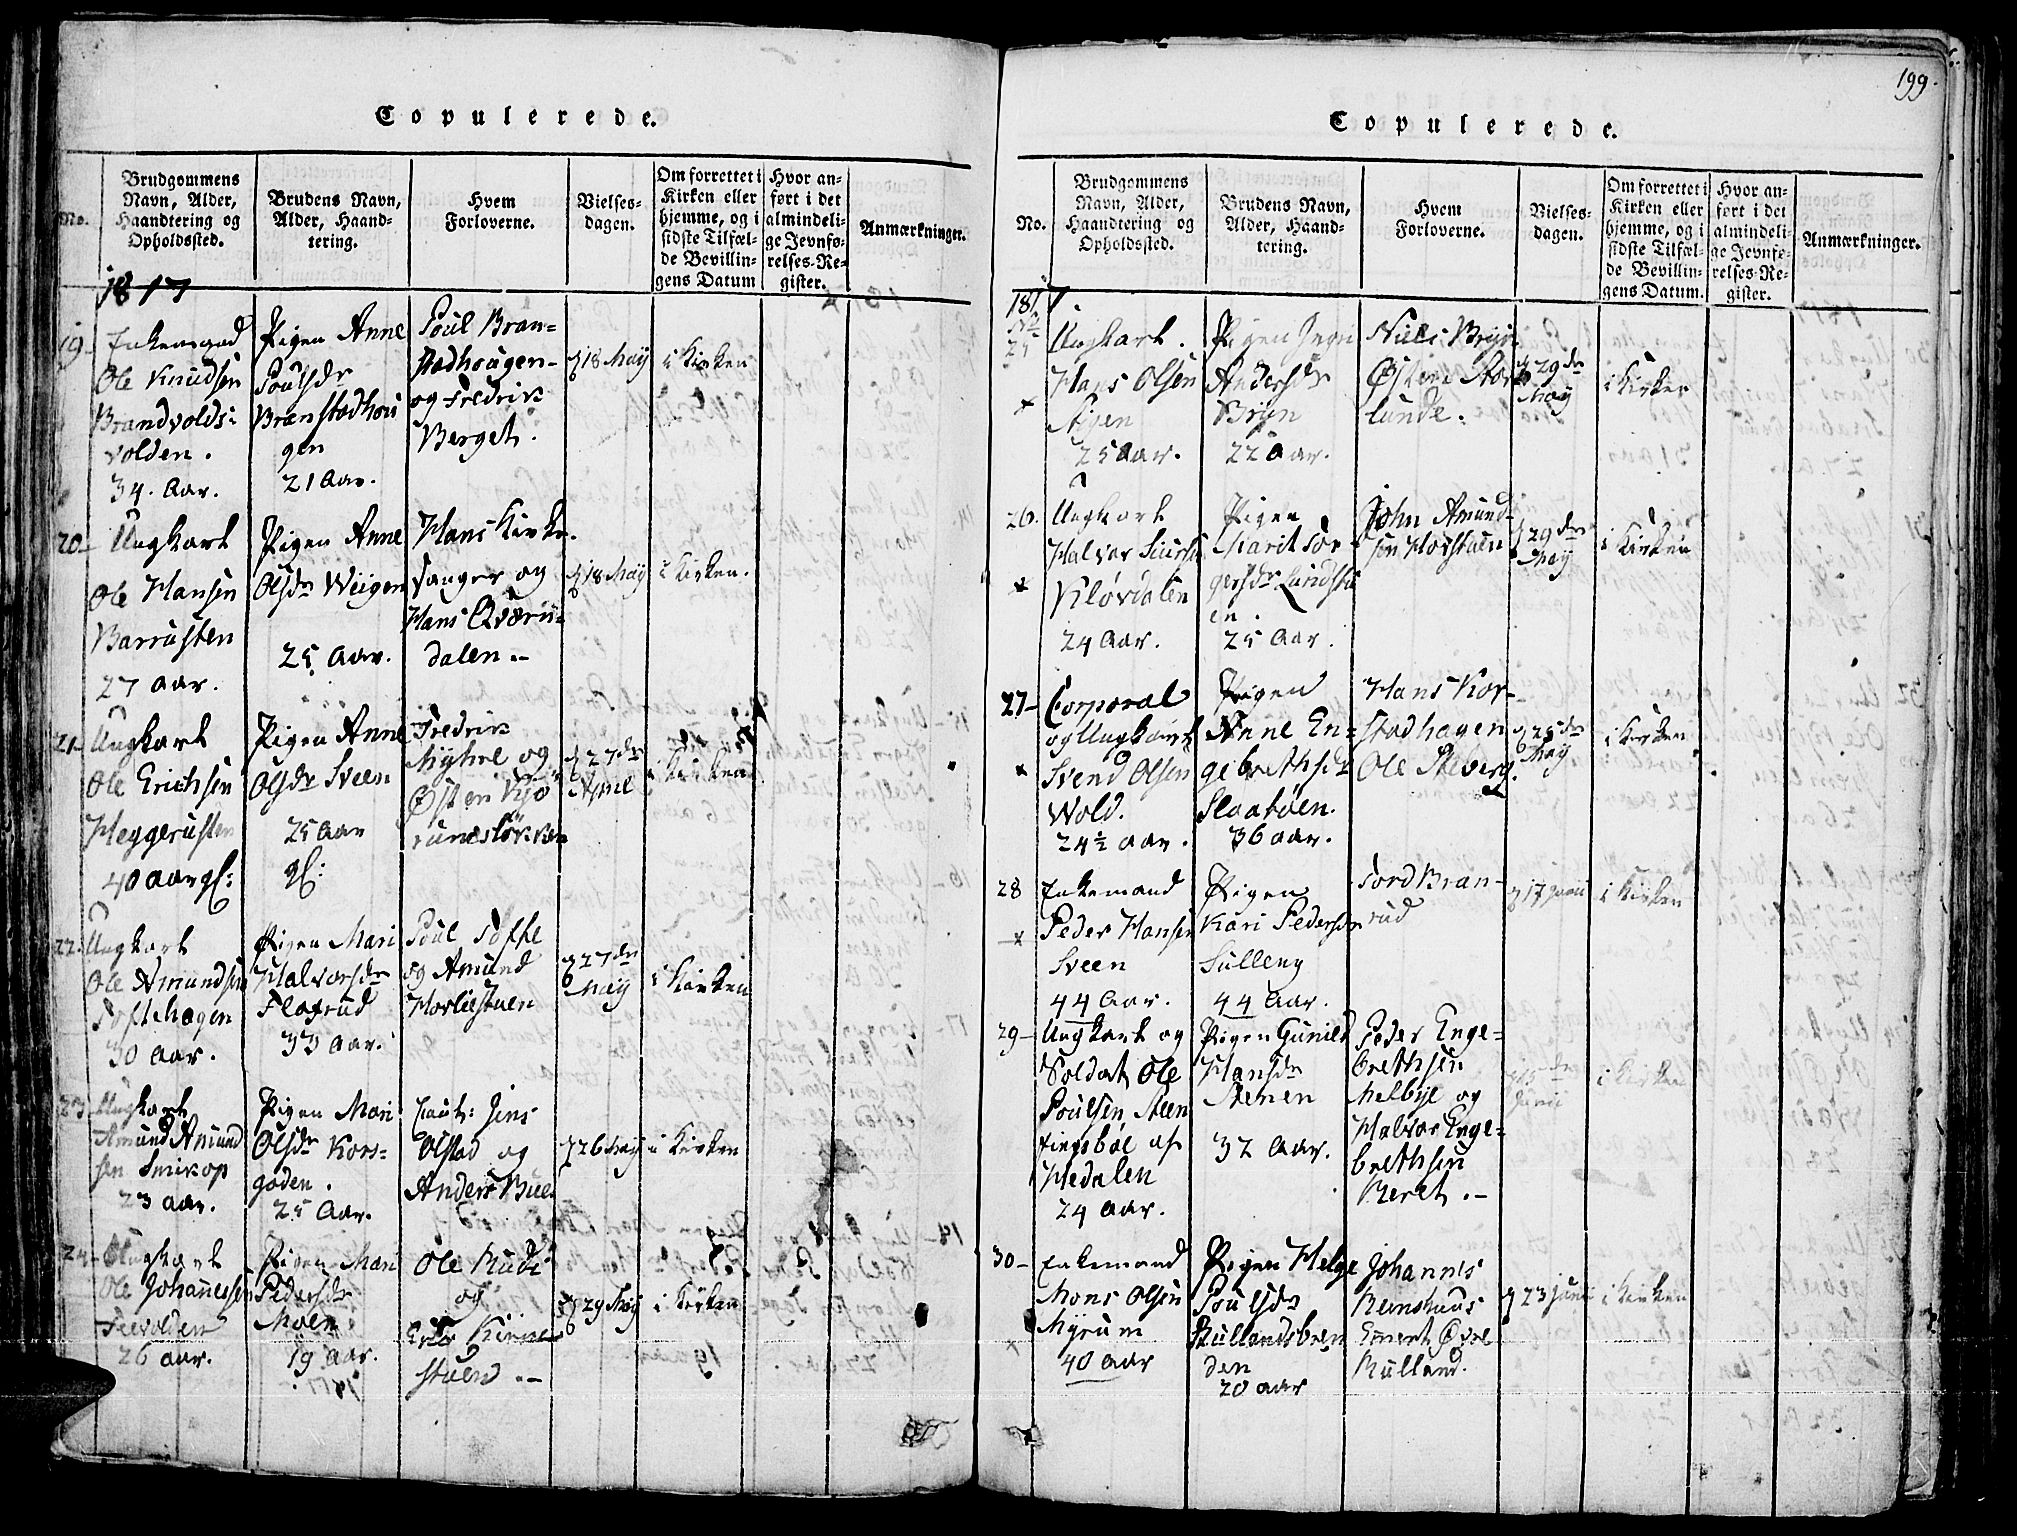 Copulerede.
No.
Brudgommens
Navn, Alder,
Haandtering og
Opholdssted.
Brudens Navn,
Alder, Haand-
tering.
Hvem
Forloverne.
Vielses-
dagen.
Om forrettet i
Kirken eller
hjemme, og i
sidste Tilfæl-
de Bevillin-
gens Datum
Hvor an-
ført i det
almindeli-
ge Jevnfø-
relses-Re-
gister.
Anmærkninger.
1817
19-
Enkemand
Ole Knudsen
Brandvolds-
volden.
34. Aar.
Pigen Anne
Poulsdr
Branstadhou
gen
21 Aar.
Poul Bran-
stadhougen-
og Fredrik
Berget.
d 18 May
i Kirken
20-
Ungkarl
Ole Hansen
Barrusten
27 Aar.
Pigen Anne
Olsdr Weigen
25 Aar.
Hans Kirke-
sanger og
Hans Qværn-
dalen.-
d 18 May
i Kirken.
21-
Ungkarl
Ole Erichsen
Heggerusten
40 Aar gl:
Pigen Anne
Olsdr Sveen
25 Aar
gl:
Fredrik
Myhre og
Østen Kjø
runsløkken
d 27de
April
i Kirken
22.
Ungkarl
Ole Amundsen
Tofthagen
30 Aar.
Pigen Mari
Halvorsdr
Flaterud
33 Aar.
Poul Tofte
og Amund
Horliestuen
d 27de
May
i Kirken
23.
Ungkarl
Amund Amund
sen Smikop
23 Aar.
Pigen Mari
Olsdr Kors-
gaden.
25 Aar.
Lieut: Jens
Olstad og
Anders Bue
d 26 May
i Kirken
24-
Ungkarl
Ole Johannessen
26 Aar.
Pigen Mari
Pedersdr
Moen
19 Aar.
Ole Rudi
og
stuen.-
d 29 May
i Kirken
199.
Copulerede.
No.
Brudgommens
Navn, Alder,
Haandtering og
Opholdssted.
Brudens Navn,
Alder, Haand-
tering.
Hvem
Forloverne.
Vielses-
dagen.
Om forrettet i
Kirken eller
hjemme, og i
sidste Tilfæl-
de Bevillin-
gens Datum.
Hvor an-
ført i det
almindeli-
ge Jevnfø-
relses-Re-
gister.
Anmærkninger.
1817.
No
25
Ungkarl.
Hans Olsen
25 Aar.
Pigen
Andersdr
Bryn
22 Aar.
Niels Bryn
Østen
lunde.
d 29de
May
i Kirken
26.
Ungkarl
Halvor
Kløvdalen
24 Aar.
Pigen
Marit Tor-
gersdr Lundstu
en.
25 Aar.
John Amund-
sen Horstuen
d 29de
May
i Kirken
27-
Corporal
og Ungkarl
Svend Olsen
Wold.
24½ Aar.
Pigen
Anne En-
gebrethsdr
Slaatøen.
36 Aar.
Hans Kor-
stadhagen
Ole Steberg.
d 25de
May
i Kirken
28
Enkemand
Peder Hansen
Sveen
44 Aar.
Pigen
Kari Pedersdr
Sulleng
44 Aar.
Tord Bran-
rud
d 17 Junii
i Kirken
29-
Ungkarl og
Soldat Ole
Poulsen Steen
fingsbøe af
Hedalen
24 Aar.
Pigen Gunild
Hansdr
Stenen
32 Aar.
Peder Enge-
brethsen
Melbye og
Halvor Enge-
brethsen
Beret.-
Junii
i Kirken
30-
Enkemand
Mons Olsen
Myrum
40 Aar
Pigen Helge
Poulsdr
Rullandsbren
den
20 Aar
Johannes
Remshuus
Emert Øvre
Rulland.
d 23 Junii
i Kirken